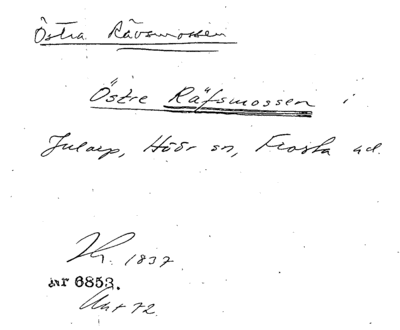 Östra Rävsmossen
Östre Räfsmossen i
Julaep, Höör sn, Frosta hd.
1837.
nr 6853.